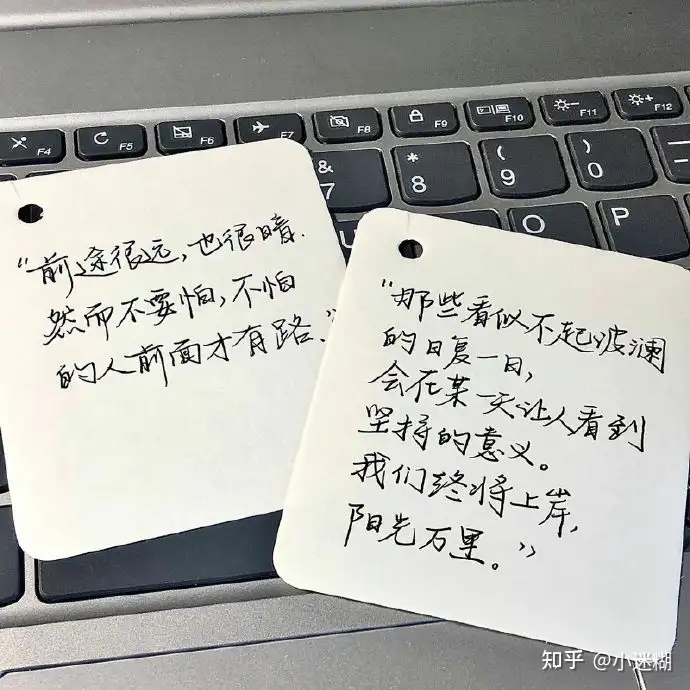 F4
F5
F6
F7
F8
F9
F10
F11
F12
&
7
*
8
(
9
)
0
U
O
P
“前途很远,也很暗.
然而不要怕,不怕
的人前面才有路.”
“那些看似不起波澜
的日复一日,
会在某一天让人看到
坚持的意义。
我们终将上岸,
阳光万里。”
知乎 @小迷糊